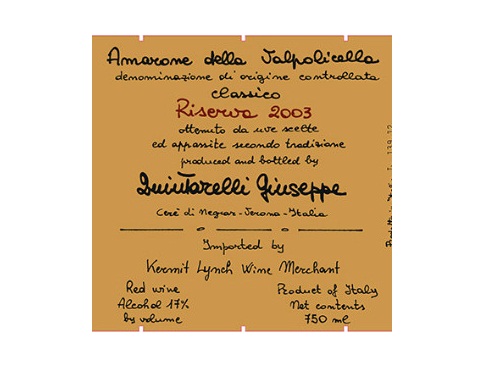 Amarone della Valpolicella
denominazione di origine controllata
classico
Riserva 2003
ottenuto da uve scelte
ed appassite secondo tradizione
produced and bottled by
Quintarelli Giuseppe
Cerè di Negrar - Verona - Italia
Imported by
Kermit Lynch Wine Merchant
Red wine
Alcohol 17%
by volume
Product of Italy
Net contents
750 ml